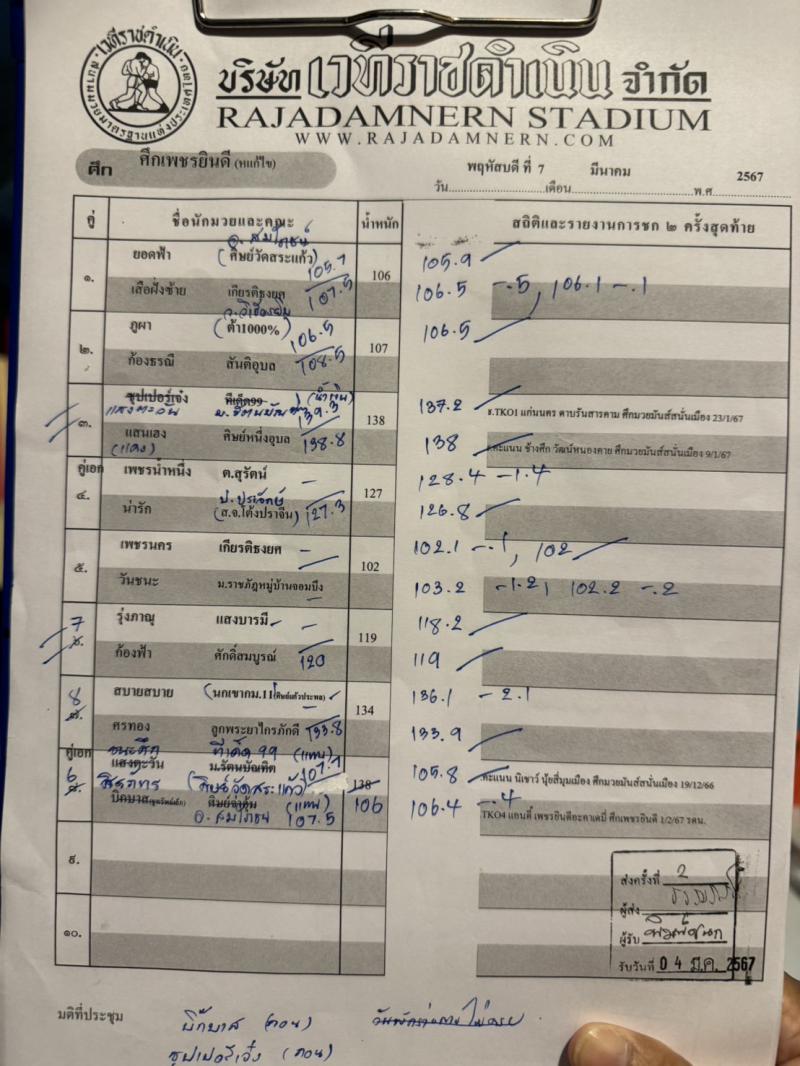 เวทีราชดำเนิน
บริษัท เวทีราชดำเนิน จำกัด
RAJADAMNERN STADIUM
WWW.RAJADAMNERN.COM
ศึก ศึกเพชรยินดี (หแก้ไข)
พฤหัสบดี ที่ 7 มีนาคม 2567
วัน เดือน พ.ศ
คู่ ชื่อนักมวยและคณะ น้ำหนัก สถิติและรายงานการชก ๒ ครั้งสุดท้าย
อ. สมโภชน์
๑. ยอดฟ้า (ศิษย์วัดสระแก้ว) 105.9 106 105.9
เสือฝั่งซ้าย เกียรติธงยศ 107.5 106.5 -.5, 106.1 -.1
๒. ภูผา (ต้า1000%) 106.5 107 106.5
ก้องธรณี สันติอุบล 108.5
๓. ซุปเปอร์เจ๋ง ทีเด็ด99 (น้ำเงิน) 138 137.2 ช.TKO1 แก่นนคร ดาบรันสารคาม ศึกมวยมันส์สนั่นเมือง 23/1/67
แสงตะวัน 139.3
แสนเฮง ศิษย์หนึ่งอุบล 138.8 138 ช.คะแนน ช้างศึก วัฒน์หนองคาย ศึกมวยมันส์สนั่นเมือง 9/1/67
(แดง)
คู่เอก ๔. เพชรน้ำหนึ่ง ต.สุรัตน์ - 127 128.4 -1.4
น่ารัก (ส.จ.โต้งปราจีน) 127.3 126.8
๕. เพชรนคร เกียรติธงยศ - 102 102.1 -.1, 102
วันชนะ ม.ราชภัฎหมู่บ้านจอมบึง 103.2 -1.2, 102.2 -.2
7 ๖. รุ่งภาณุ แสงบารมี - 119 118.2
ก้องฟ้า ศักดิ์สมบูรณ์ 120 119
8 ๗. สบายสบาย (นกเขากม.11) (ศิษย์แก้วประพล) 134 136.1 -2.1
ศรทอง ลูกพระยาไกรภักดี 133.8 133.9
คู่เอก ชนะศึก ทีเด็ด 99 (แทน)
6 ๘. แสงตะวัน ม.รัตนบัณฑิต 107.9 138 105.8 ช.คะแนน นิเชาว์ นุ้ยสี่มุมเมือง ศึกมวยมันส์สนั่นเมือง 19/12/66
(ศิษย์วัดสระแก้ว)
บิ๊กบาส ศิษย์จ่าตุ้ม (แทน) 106 106.4 -.4 TKO4 แอนดี้ เพชรอินดีอะคาเดมี่ ศึกเพชรยินดี 1/2/67 รดน.
อ. สมโภชน์ 107.5
๙.
๑๐.
ส่งครั้งที่ 2
ผู้ส่ง
ผู้รับ พิมพ์ชนก
รับวันที่ 04 มี.ค. 2567
มติที่ประชุม บิ๊กบาส (ถอน)
ซุปเปอร์เจ๋ง (ถอน)